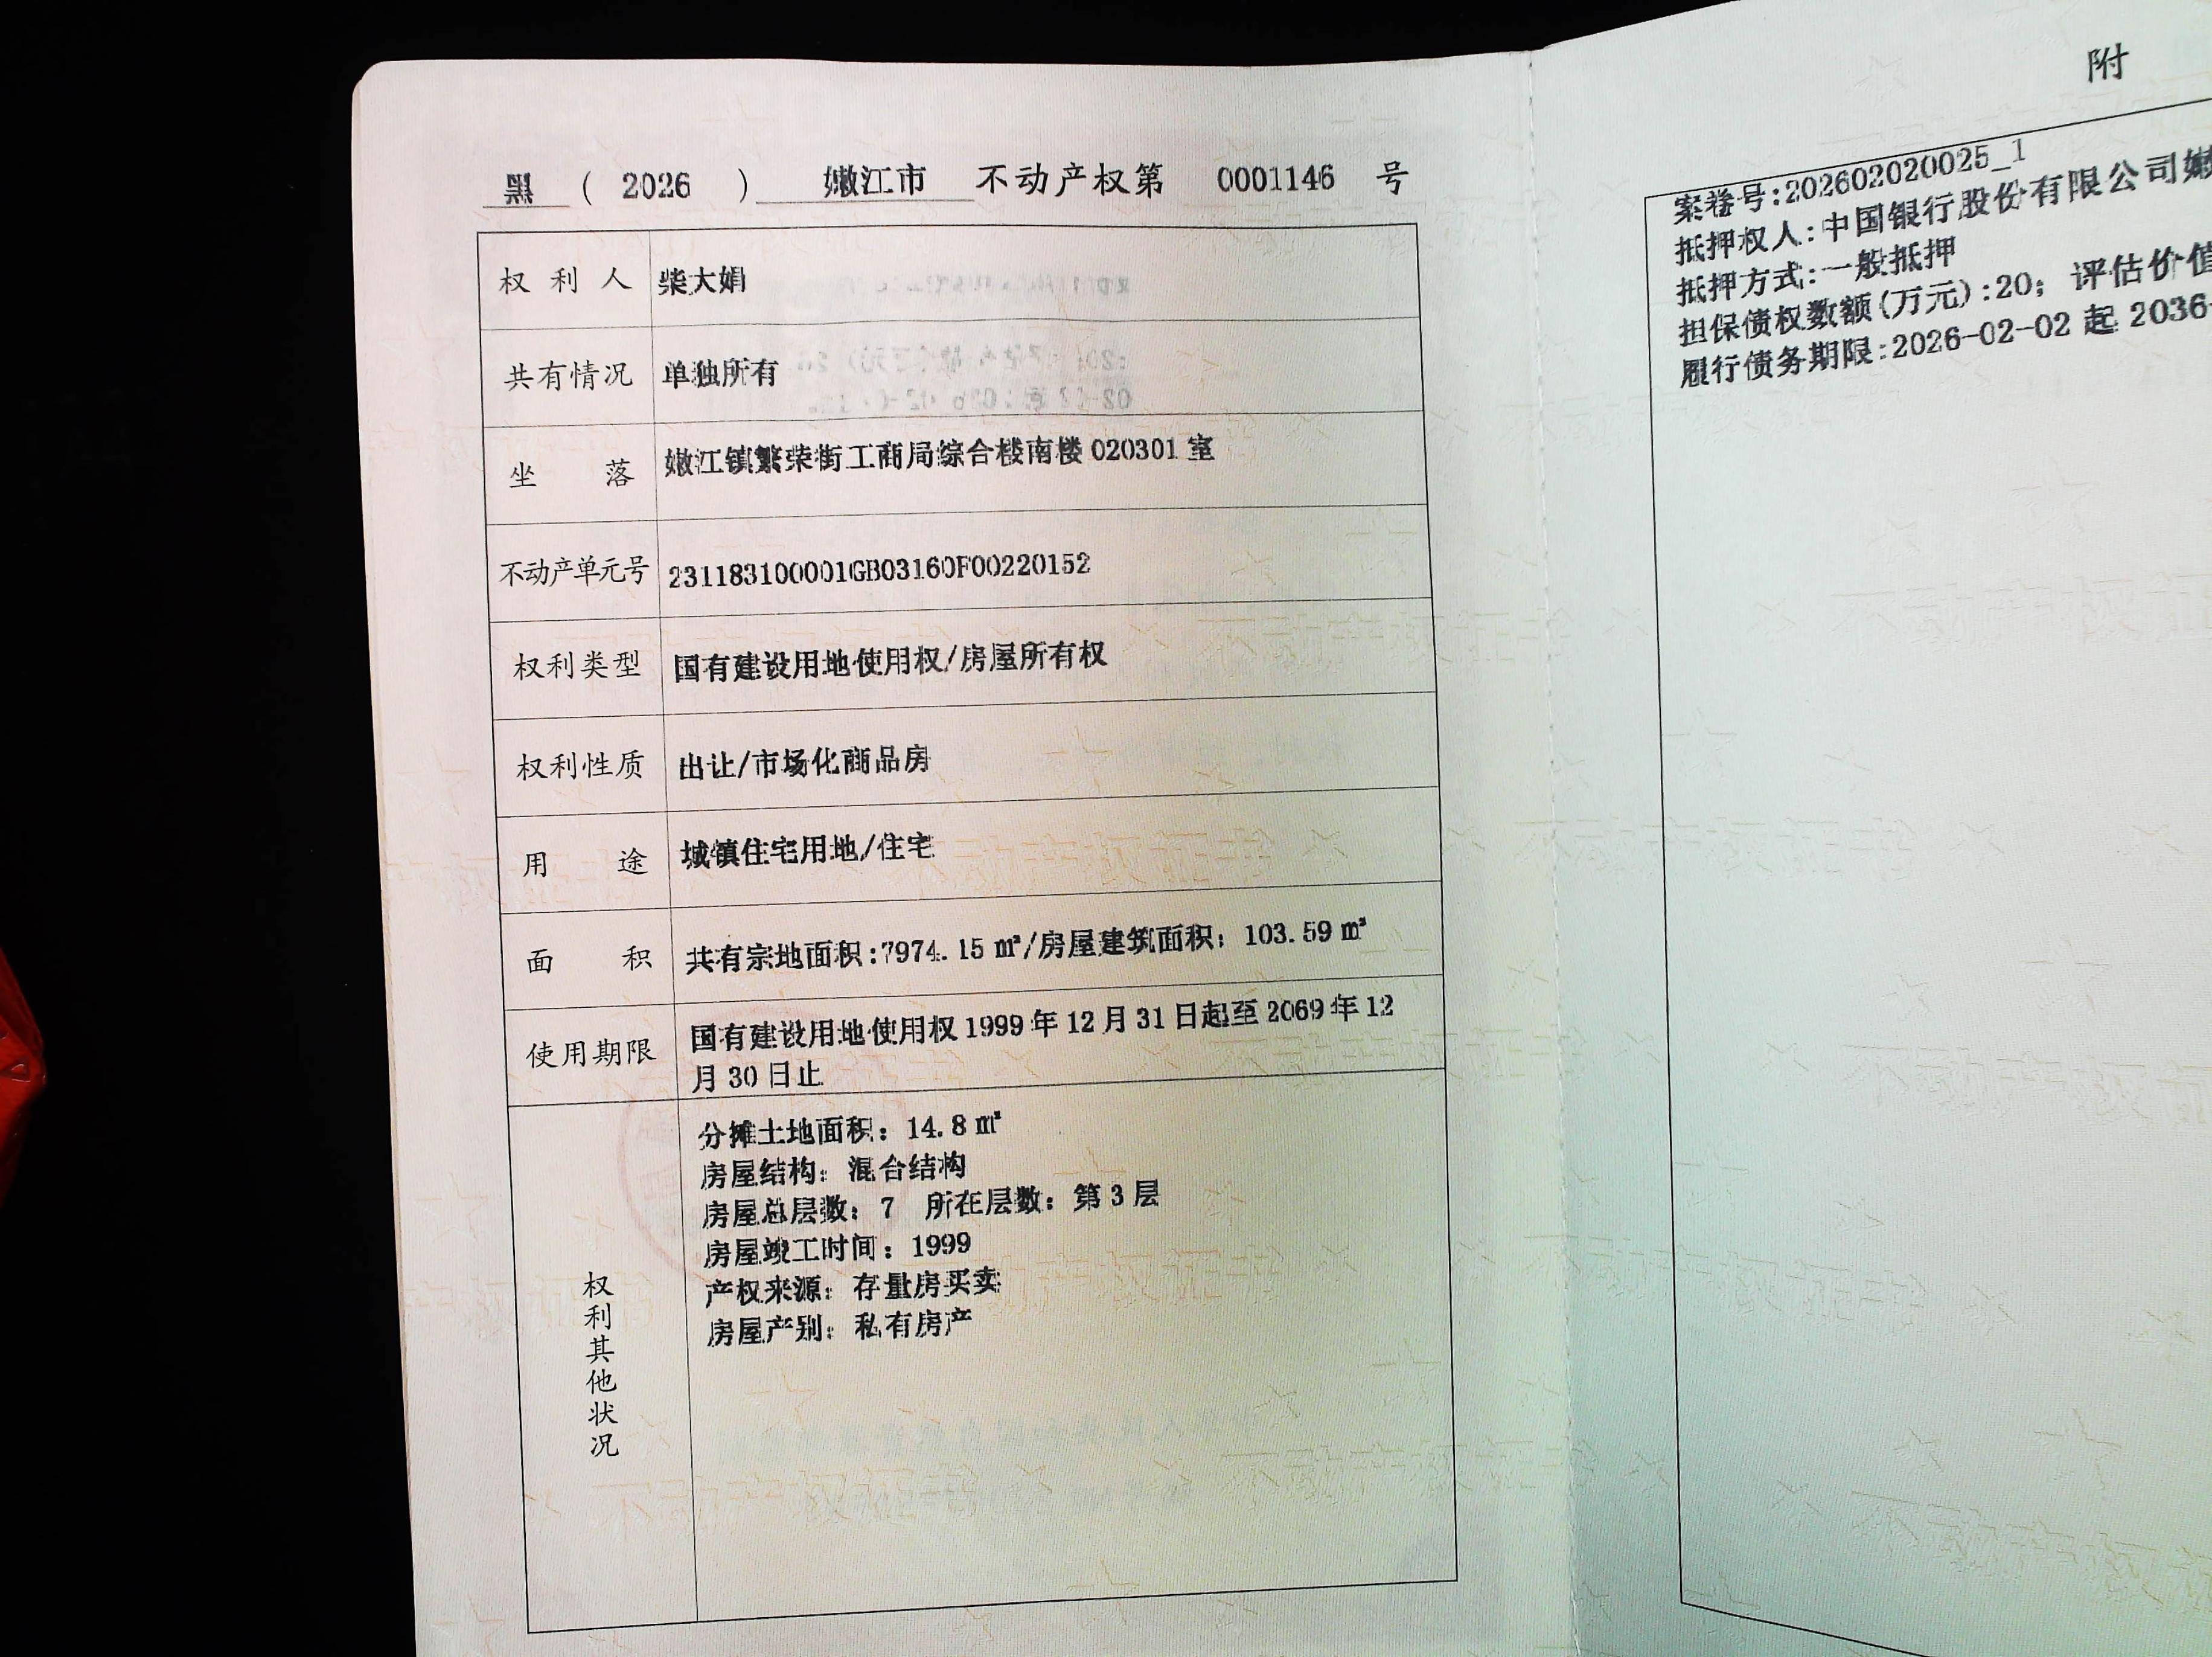 黑 ( 2026 ) 嫩江市 不动产权第 0001146 号
权利人 柴大娟
共有情况 单独所有
坐落 嫩江镇繁荣街工商局综合楼南楼 020301 室
不动产单元号 231183100001GB03160F00220152
权利类型 国有建设用地使用权/房屋所有权
权利性质 出让/市场化商品房
用途 城镇住宅用地/住宅
面积 共有宗地面积:7974.15 ㎡/房屋建筑面积: 103.59 ㎡
使用期限 国有建设用地使用权 1999 年 12 月 31 日起至 2069 年 12
月 30 日止
权利其他状况
分摊土地面积: 14.8 ㎡
房屋结构: 混合结构
房屋总层数: 7 所在层数: 第 3 层
房屋竣工时间: 1999
产权来源: 存量房买卖
房屋产别: 私有房产
附
案卷号:202602020025_1
抵押权人:中国银行股份有限公司嫩
抵押方式:一般抵押
担保债权数额(万元):20; 评估价值
履行债务期限:2026-02-02 起 2036-